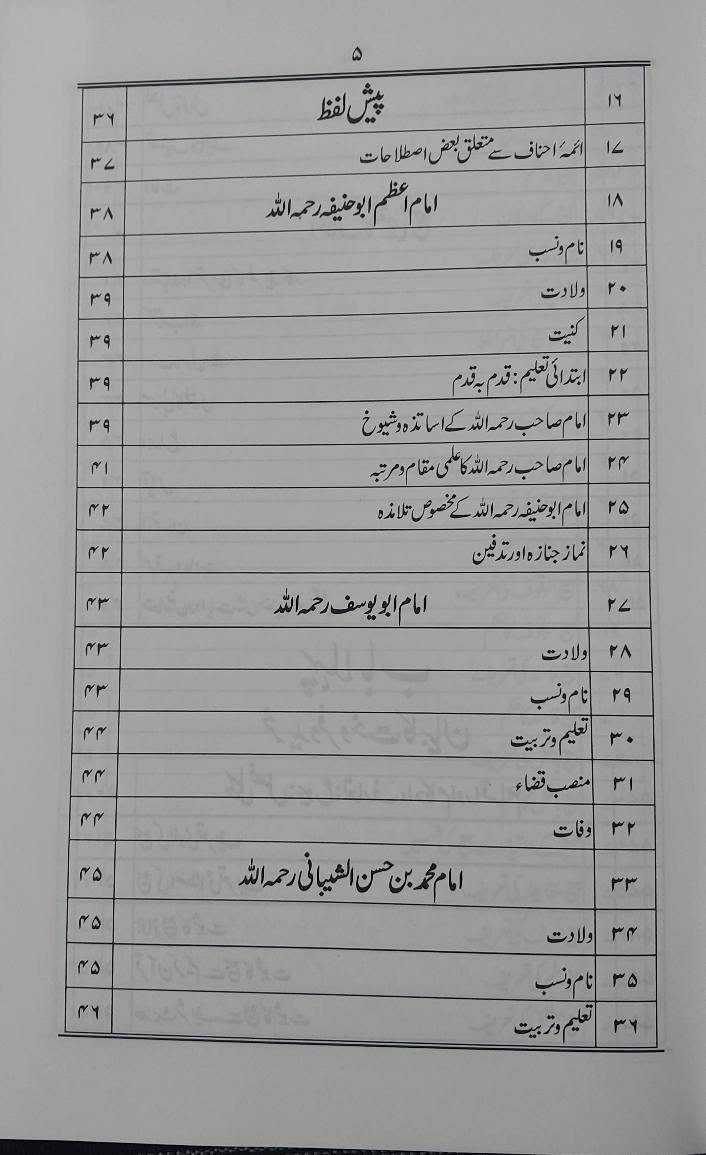 ۵
۱۶ پیش لفظ ۳۶
۱۷ ائمۂ احناف سے متعلق بعض اصطلاحات ۳۷
۱۸ امام اعظم ابوحنیفہ رحمہ اللہ ۳۸
۱۹ نام ونسب ۳۸
۲۰ ولادت ۳۹
۲۱ کنیت ۳۹
۲۲ ابتدائی تعلیم: قدم بہ قدم ۳۹
۲۳ امام صاحب رحمہ اللہ کے اساتذہ وشیوخ ۳۹
۲۴ امام صاحب رحمہ اللہ کا علمی مقام ومرتبہ ۴۱
۲۵ امام ابوحنیفہ رحمہ اللہ کے مخصوص تلامذہ ۴۲
۲۶ نماز جنازہ اور تدفین ۴۲
۲۷ امام ابویوسف رحمہ اللہ ۴۳
۲۸ ولادت ۴۳
۲۹ نام ونسب ۴۳
۳۰ تعلیم وتربیت ۴۴
۳۱ منصب قضاء ۴۴
۳۲ وفات ۴۴
۳۳ امام محمد بن حسن الشیبانی رحمہ اللہ ۴۵
۳۴ ولادت ۴۵
۳۵ نام ونسب ۴۵
۳۶ تعلیم وتربیت ۴۶